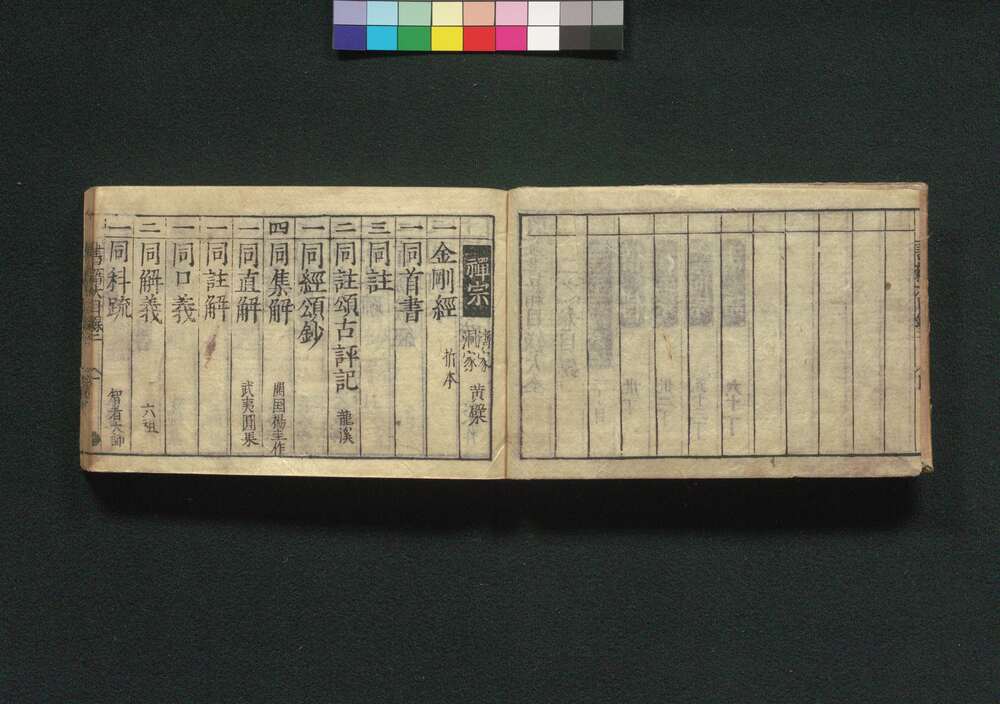 禪宗 濟家 洞家 黄檗
一 金剛經 折本
一 同首書
三 同註
二 同註頌古評記 龍溪
一 同經頌鈔
四 同集解 開国楊圭作
一 同直解 武夷圓杲
一 同註解
一 同口義
二 同解義 六祖
一 同科䟽 智者大師
書籍大目録二